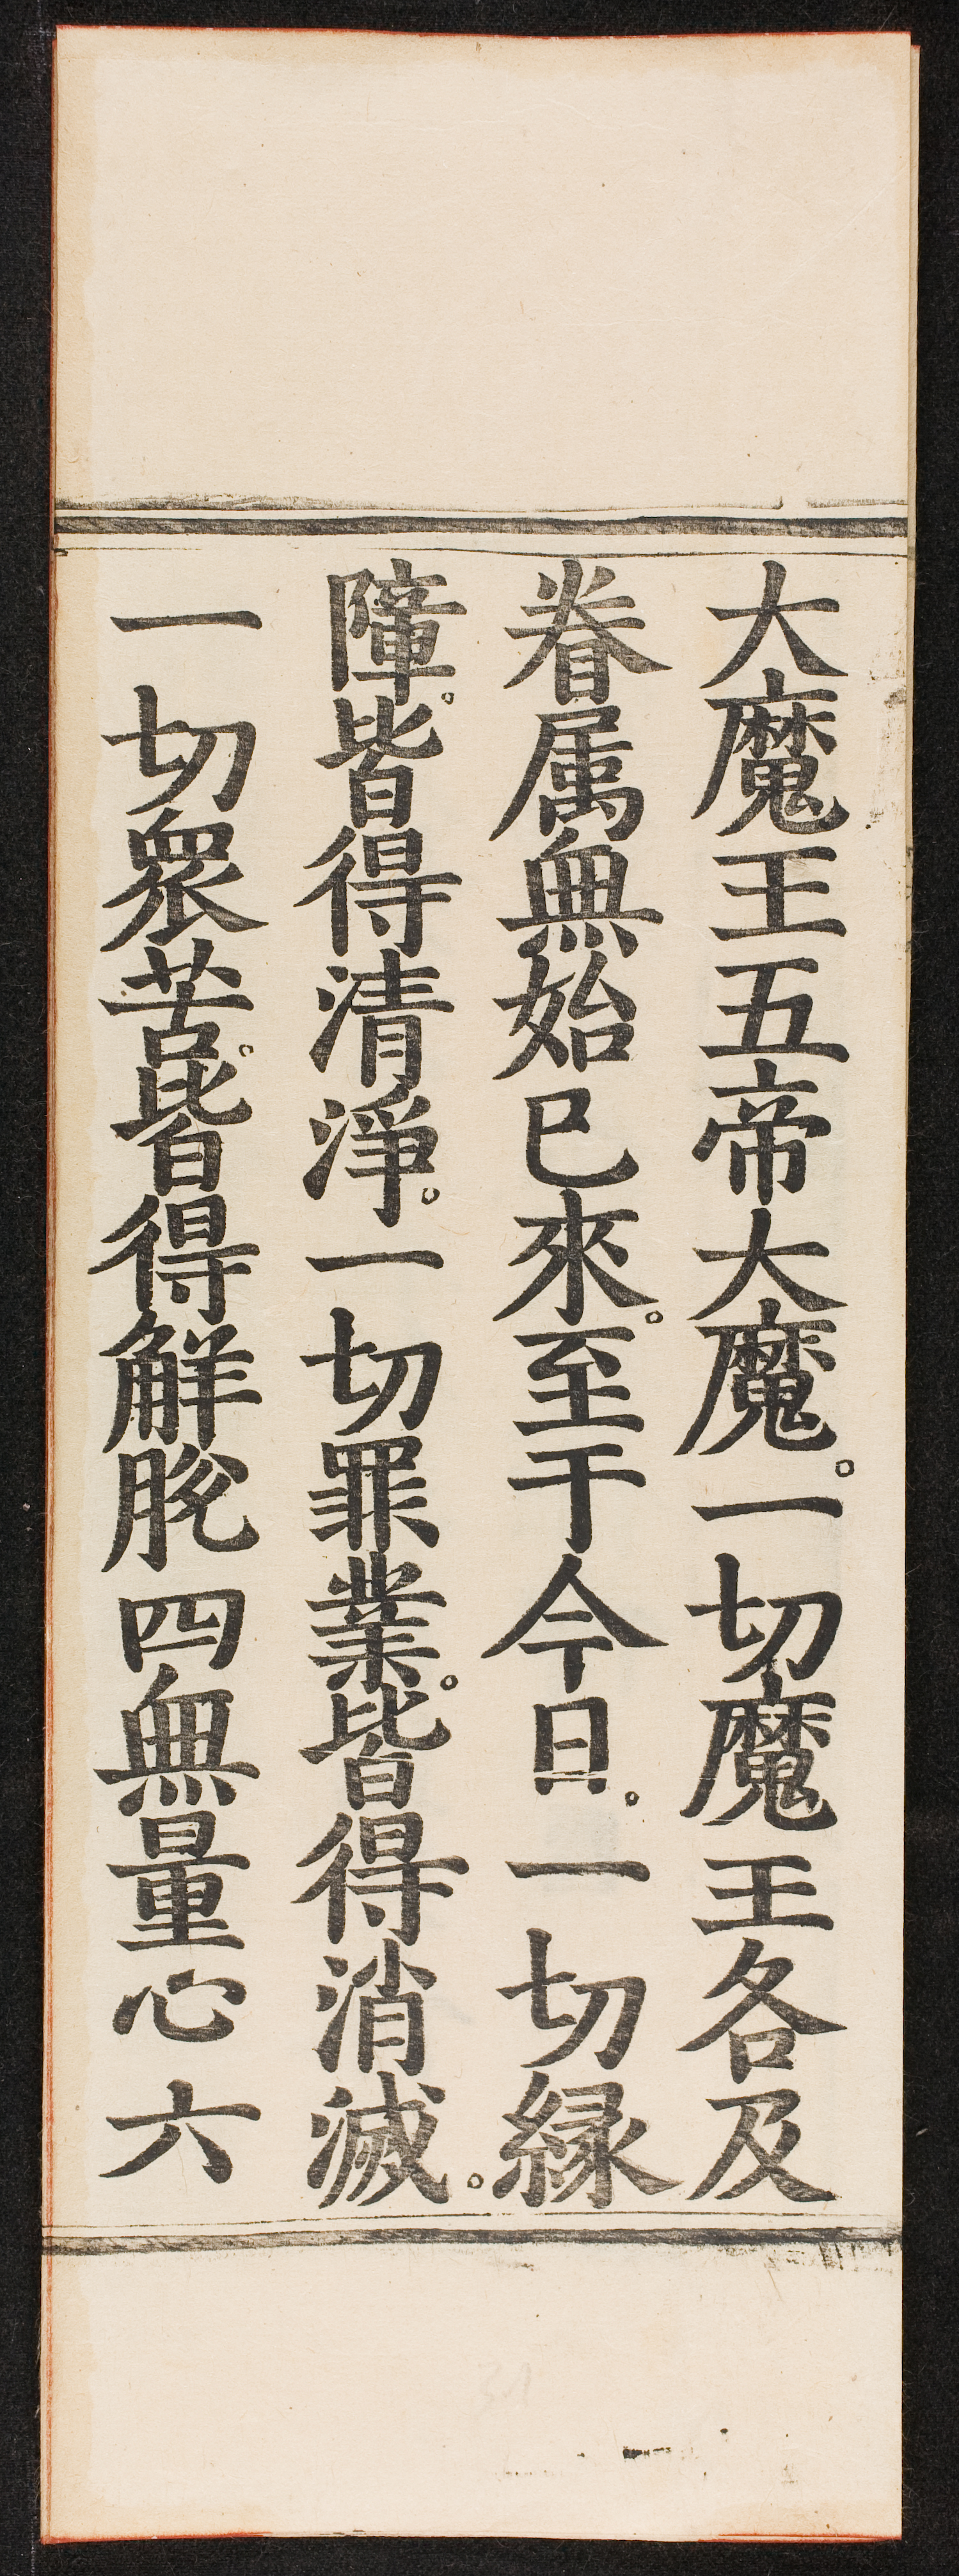 大魔王五帝大魔。一切魔王各及
眷属無始已來。至于今日。一切縁
障。皆得清淨。一切罪業。皆得消滅。
一切衆苦。皆得解脫四無量心六